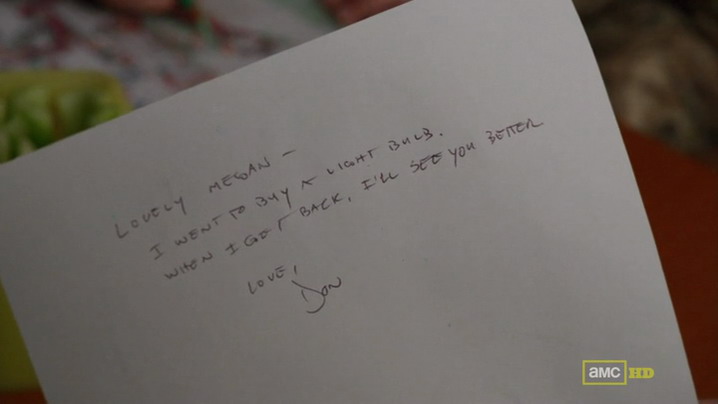 LOVELY MEGAN —
I WENT TO BUY A LIGHT BULB.
WHEN I GET BACK, I'LL SEE YOU BETTER
LOVE,
DON
amc HD